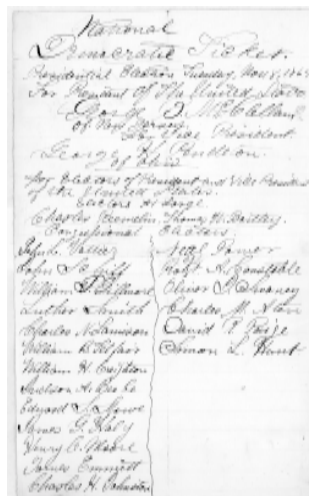 National
Democratic Ticket.
Presidential Election, Tuesday, Nov 8, 186
For President Of The United States
George B. McClellan
Of New Jersey
For Vice President
George H. Pendleton
of Ohio
for Electors of President and Vice President
of the United States.
Electors At Large.
Charles Reemelin. Thomas W. Bartley
Congressional Electors.
John L. Vattier
John
William J.
Luther Smith
Charles N. Lamison
William
William H. Creighton
Judson A. Beebe
Edward S.
James G. Haly
Henry C. Moore
James Emmitt
Charles H. Johnston
Neth Pomer
A. Constable
Oliver J. Swaney
Charles M. Aten
David R. Paige
Simon L. Hunt